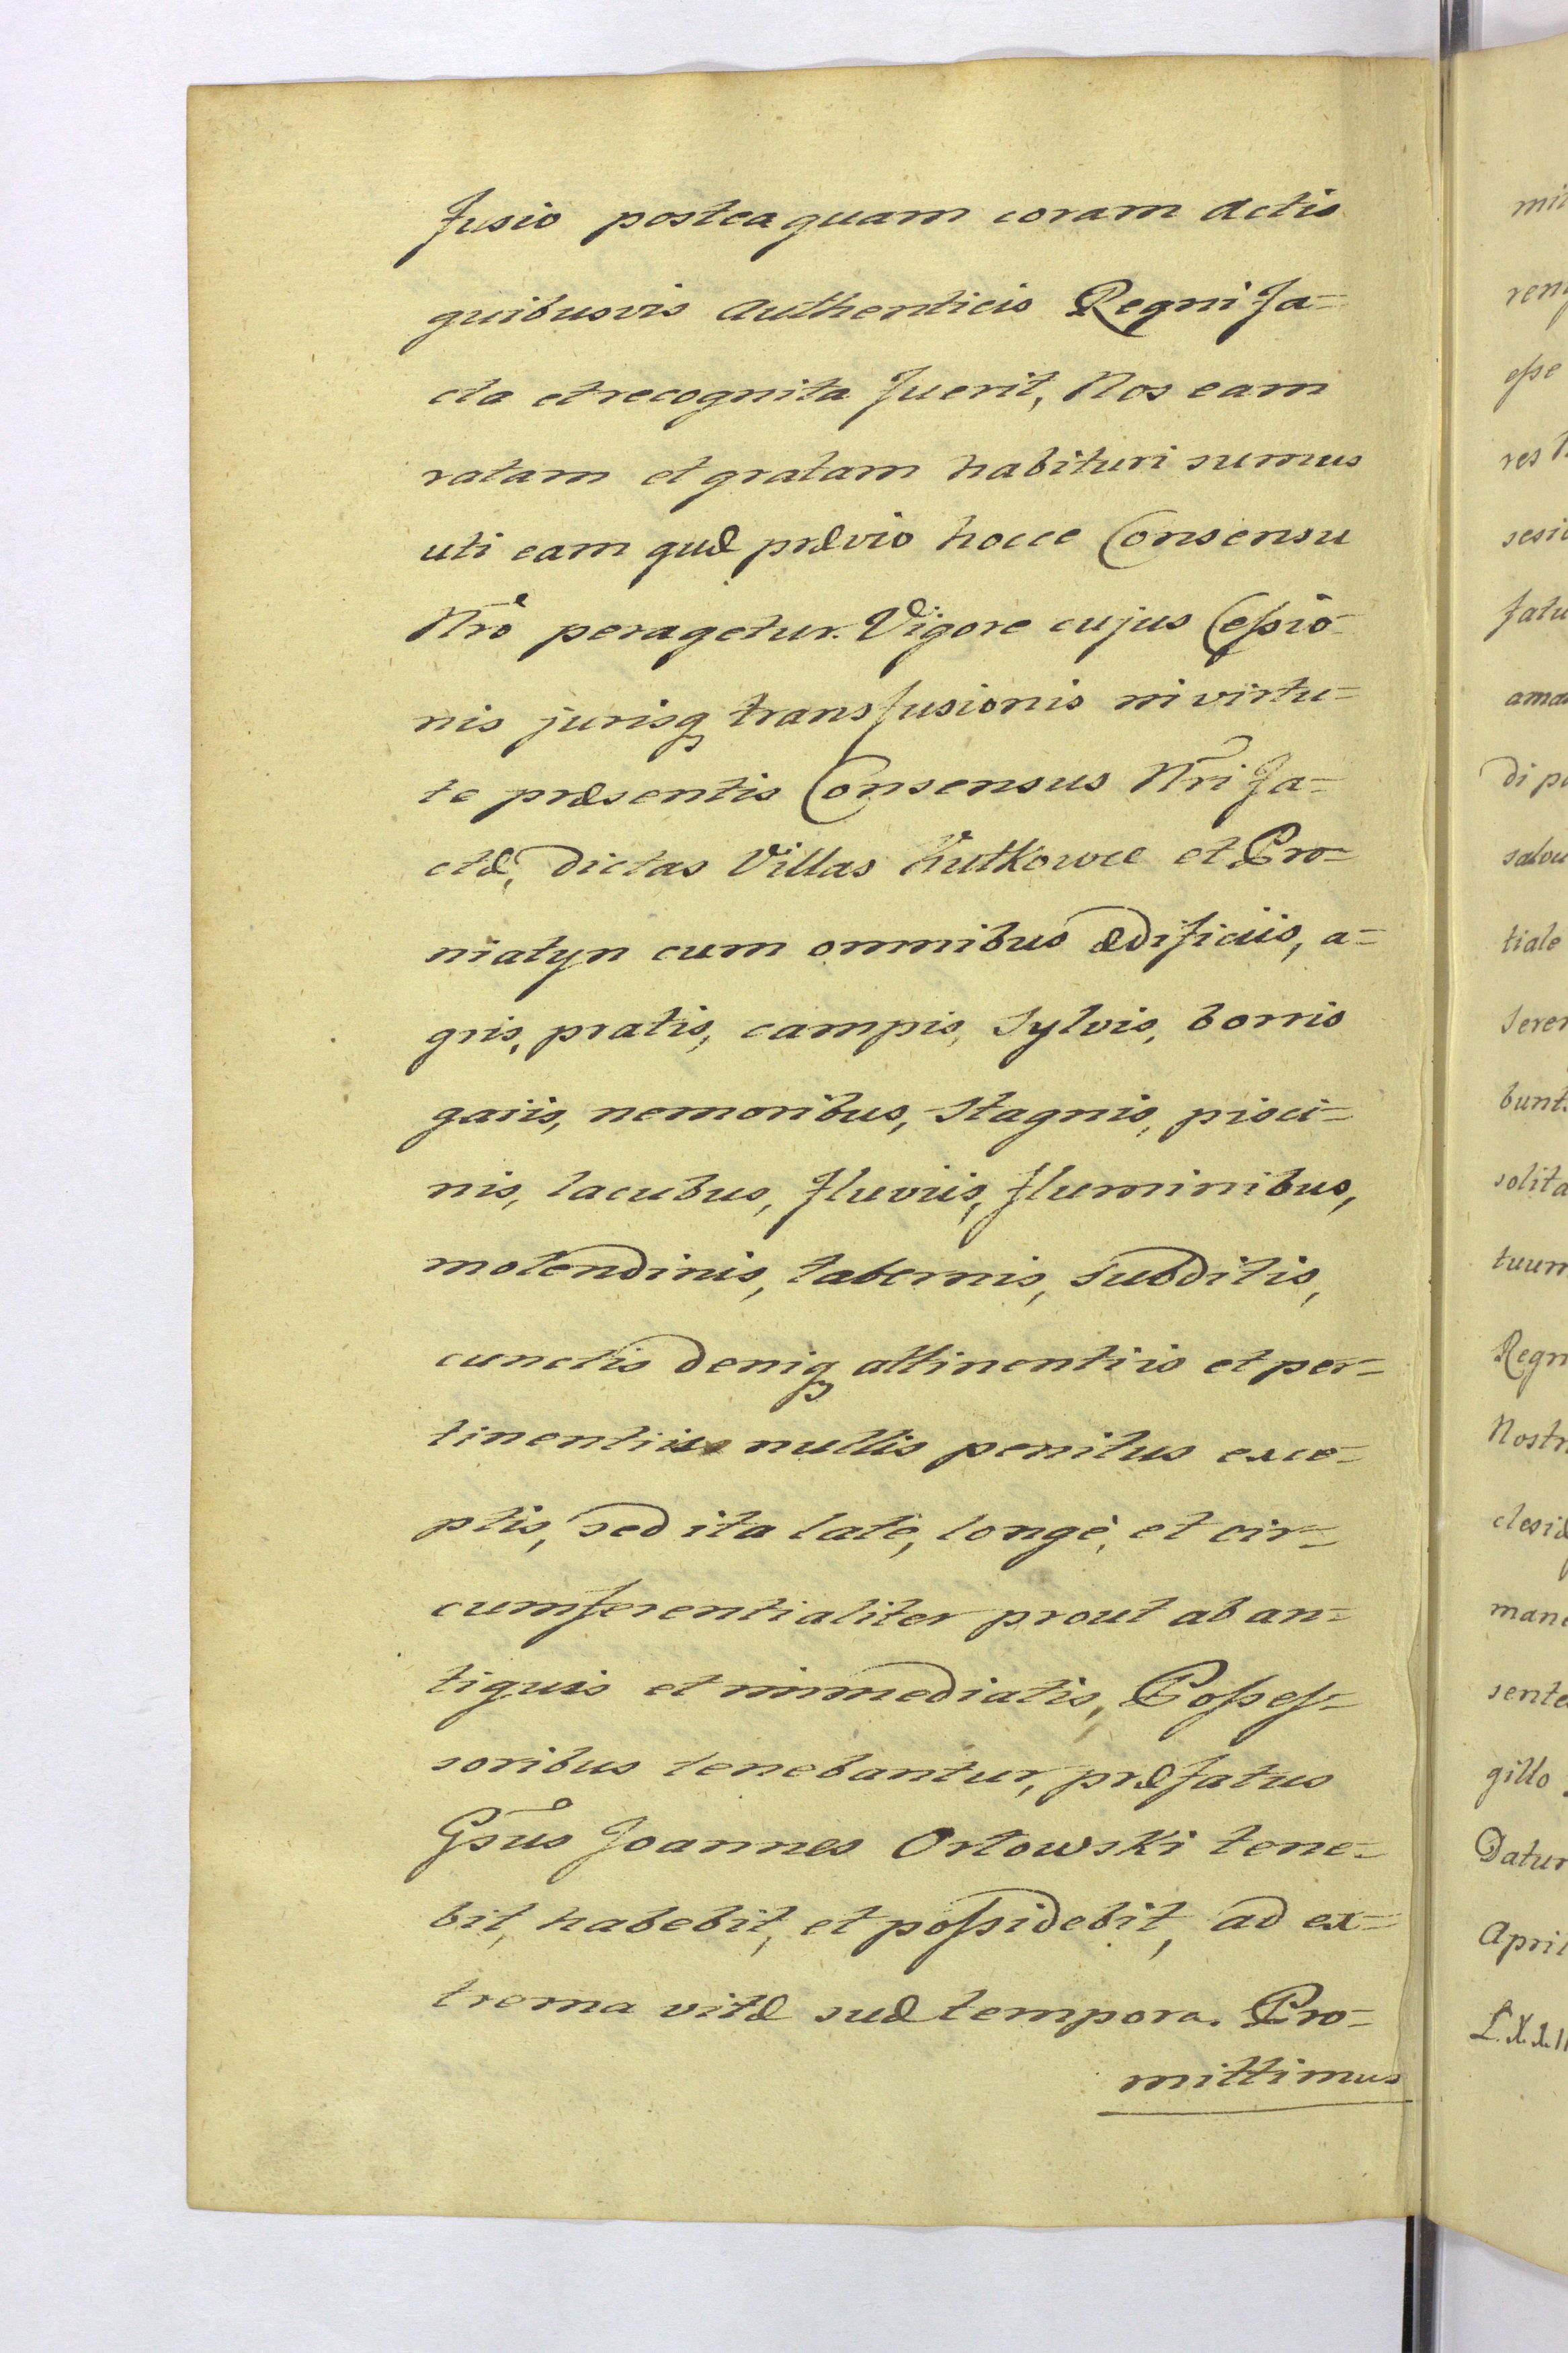 fusio posteaquam coram Actis
quibusvis Authenticis Regni fa=
cta et recognita fuerit, Nos eam
ratam et gratam habituri sumus
uti eam quæ prævio hocce Consensu
Nrõ peragetur. Vigore cujus Cessio=
nis jurisq transfusionis in virtu=
te præsentis Consensus Nri fa=
ctæ, dictas Villas Kutkowce et Pro=
niatyn cum omnibus ædificiis, a=
gris, pratis, campis, Sylvis, borris
gaiis, nemoribus, Stagnis, pisci=
nis, lacubus, fluviis, fluminibus,
molendinis, tabernis, Subditis,
cunctis deniq attinentiis et per=
tinentiis nullis penitus exce=
ptis, sed ita latè, longè, et cir=
cumferentialiter prout ab an=
tiquis et immediatis, Posses=
soribus tenebantur, præfatus
Gsũs Joannes Orłowski tene=
bit, habebit, et possidebit, ad ex=
trema vitæ suæ tempora. Pro=
mittimus
esse
tiale
solita
Nostr
gillo
Datur
April